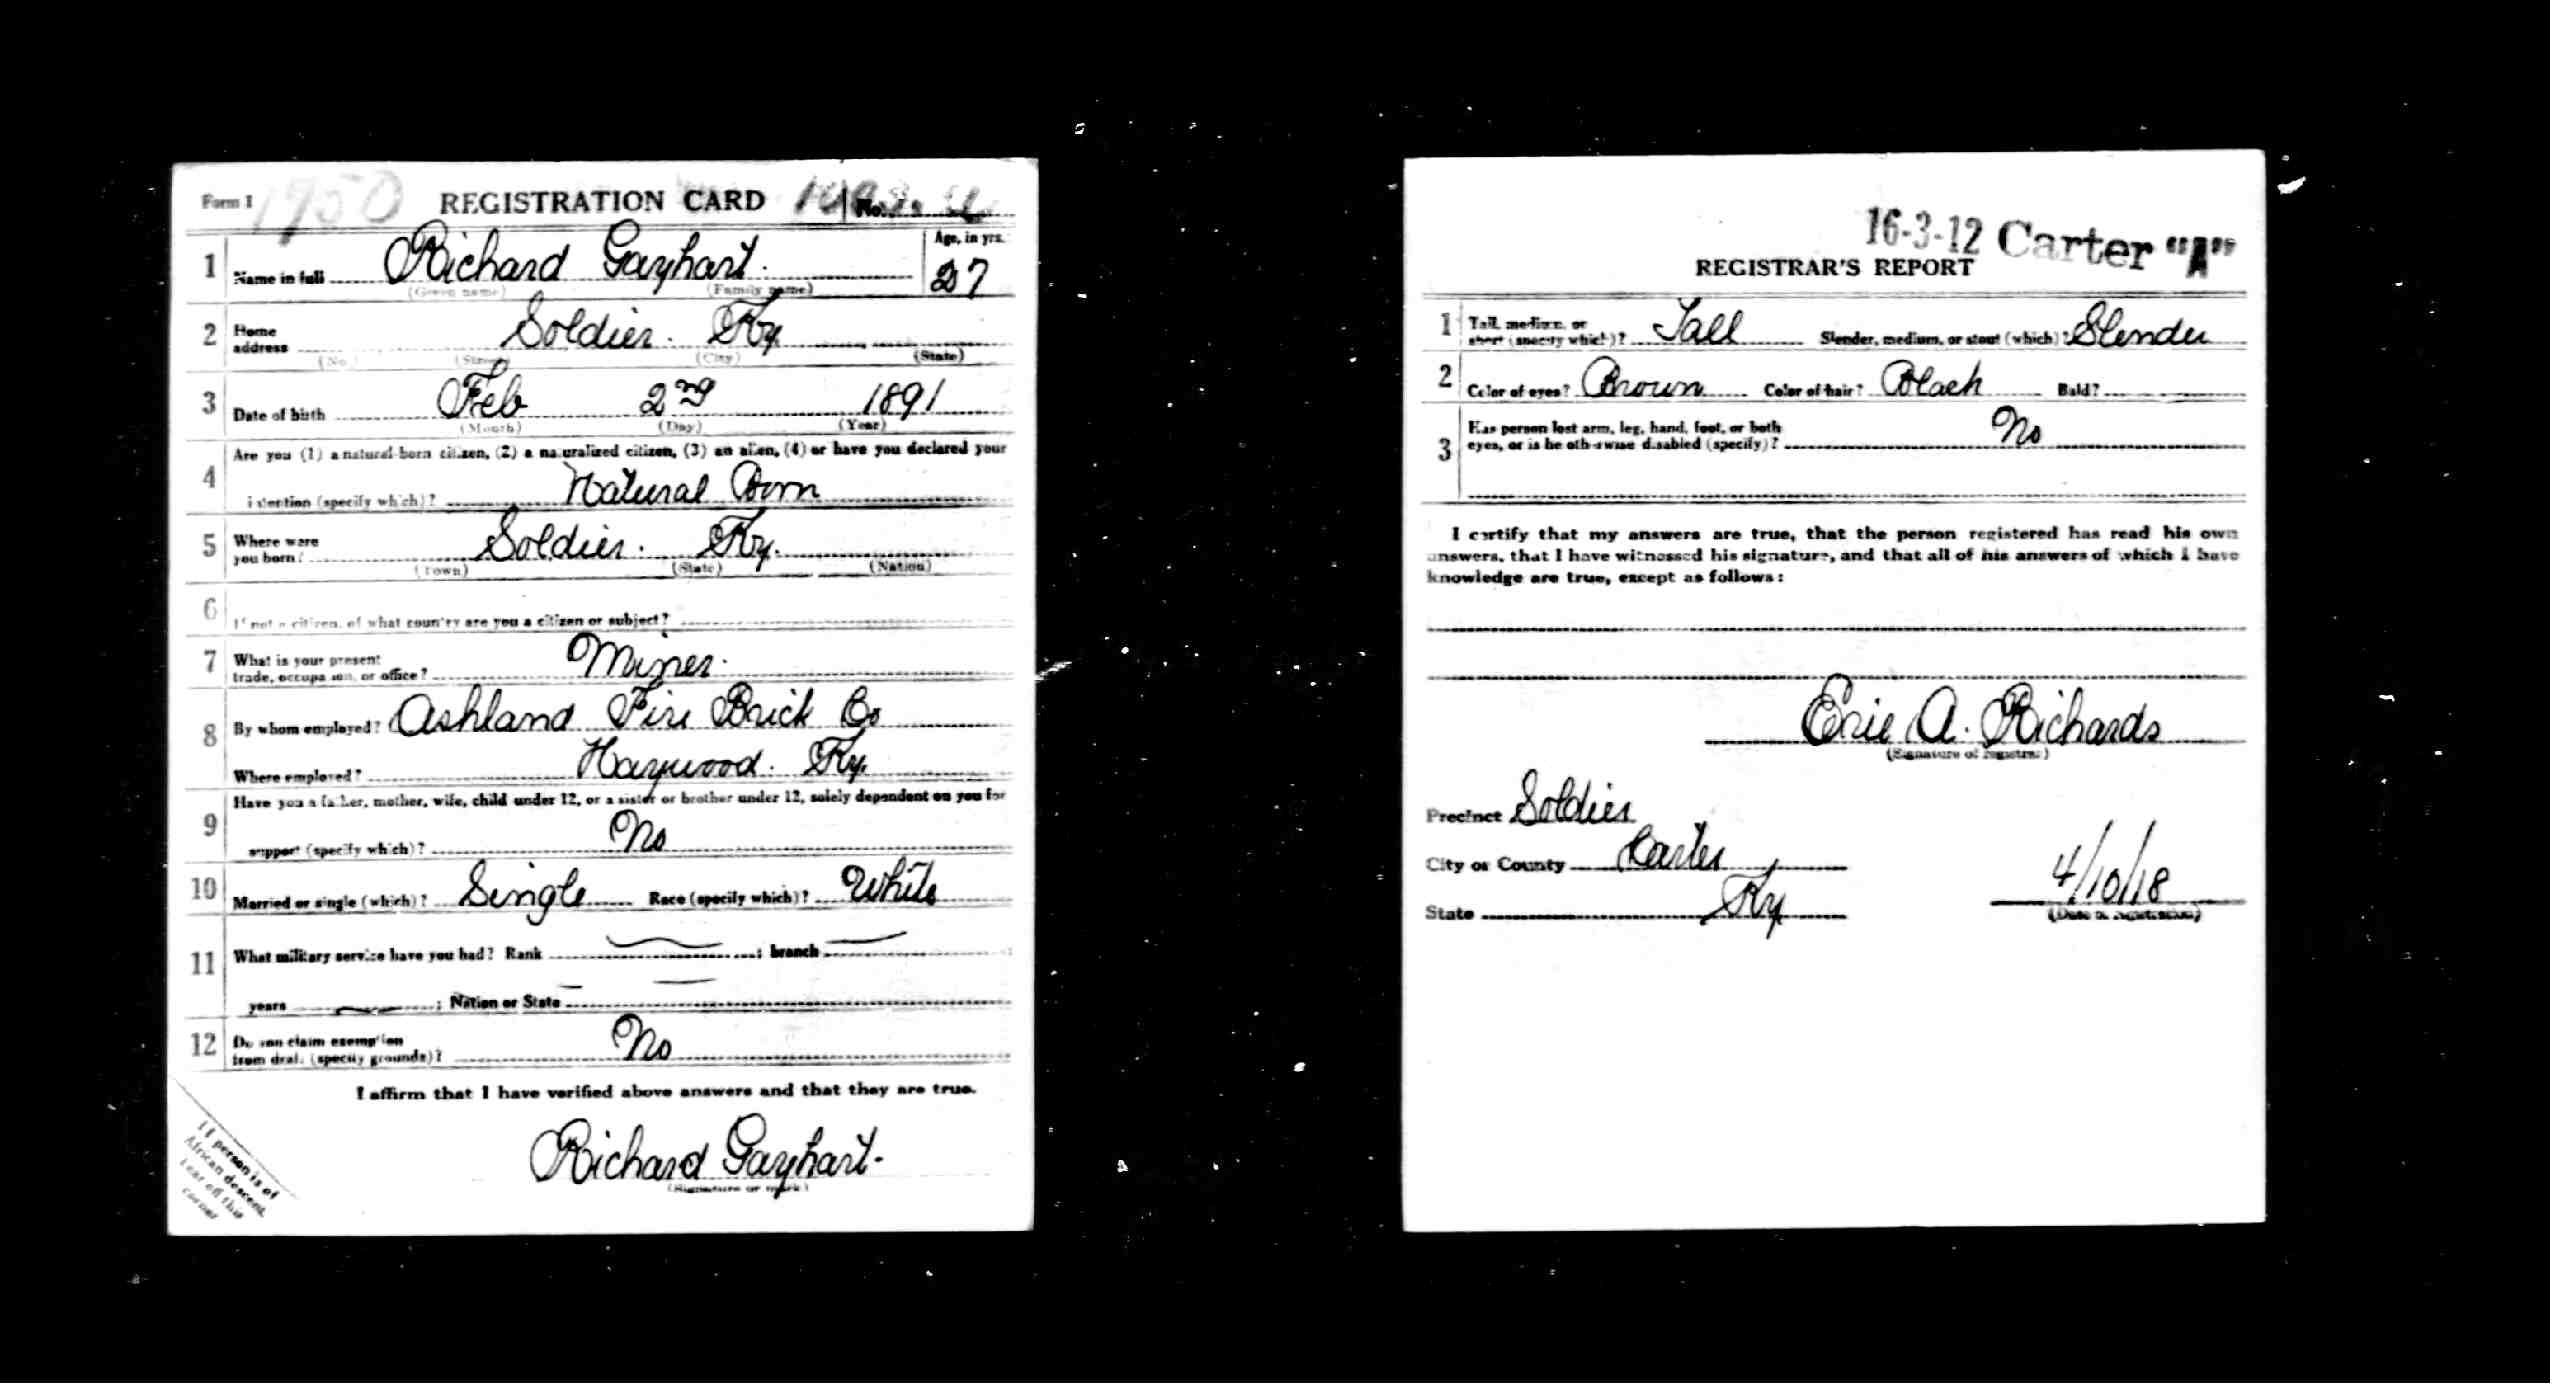 Form 1 1950 REGISTRATION CARD No.
1 Name in full Richard Gayhart. Age, in yrs. 27
(Given name) (Family name)
2 Home address Soldier. Ky.
(No.) (Street) (City) (State)
3 Date of birth Feb 2nd 1891
(Month) (Day) (Year)
Are you (1) a natural-born citizen, (2) a naturalized citizen, (3) an alien, (4) or have you declared your
4 intention (specify which)? Natural Born
5 Where were you born? Soldier. Ky.
(Town) (State) (Nation)
6 If not a citizen, of what country are you a citizen or subject?
7 What is your present trade, occupation, or office? Miner.
8 By whom employed? Ashland Fire Brick Co
Where employed? Haywood. Ky.
Have you a father, mother, wife, child under 12, or a sister or brother under 12, solely dependent on you for
9 support (specify which)? No
10 Married or single (which)? Single Race (specify which)? White
11 What military service have you had? Rank ; branch
years ; Nation or State
12 Do you claim exemption from draft (specify grounds)? No
I affirm that I have verified above answers and that they are true.
Richard Gayhart.
(Signature or mark)
If person is of
African descent,
tear off this
corner
16-3-12 Carter "A"
REGISTRAR'S REPORT
1 Tall, medium, or short (specify which)? Tall Slender, medium, or stout (which)? Slender
2 Color of eyes? Brown Color of hair? Black Bald?
3 Has person lost arm, leg, hand, foot, or both
eyes, or is he otherwise disabled (specify)? No
I certify that my answers are true, that the person registered has read his own
answers, that I have witnessed his signature, and that all of his answers of which I have
knowledge are true, except as follows:
Eric A. Richards
(Signature of registrar)
Precinct Soldier
City or County Carter
State Ky 4/10/18
(Date of registration)